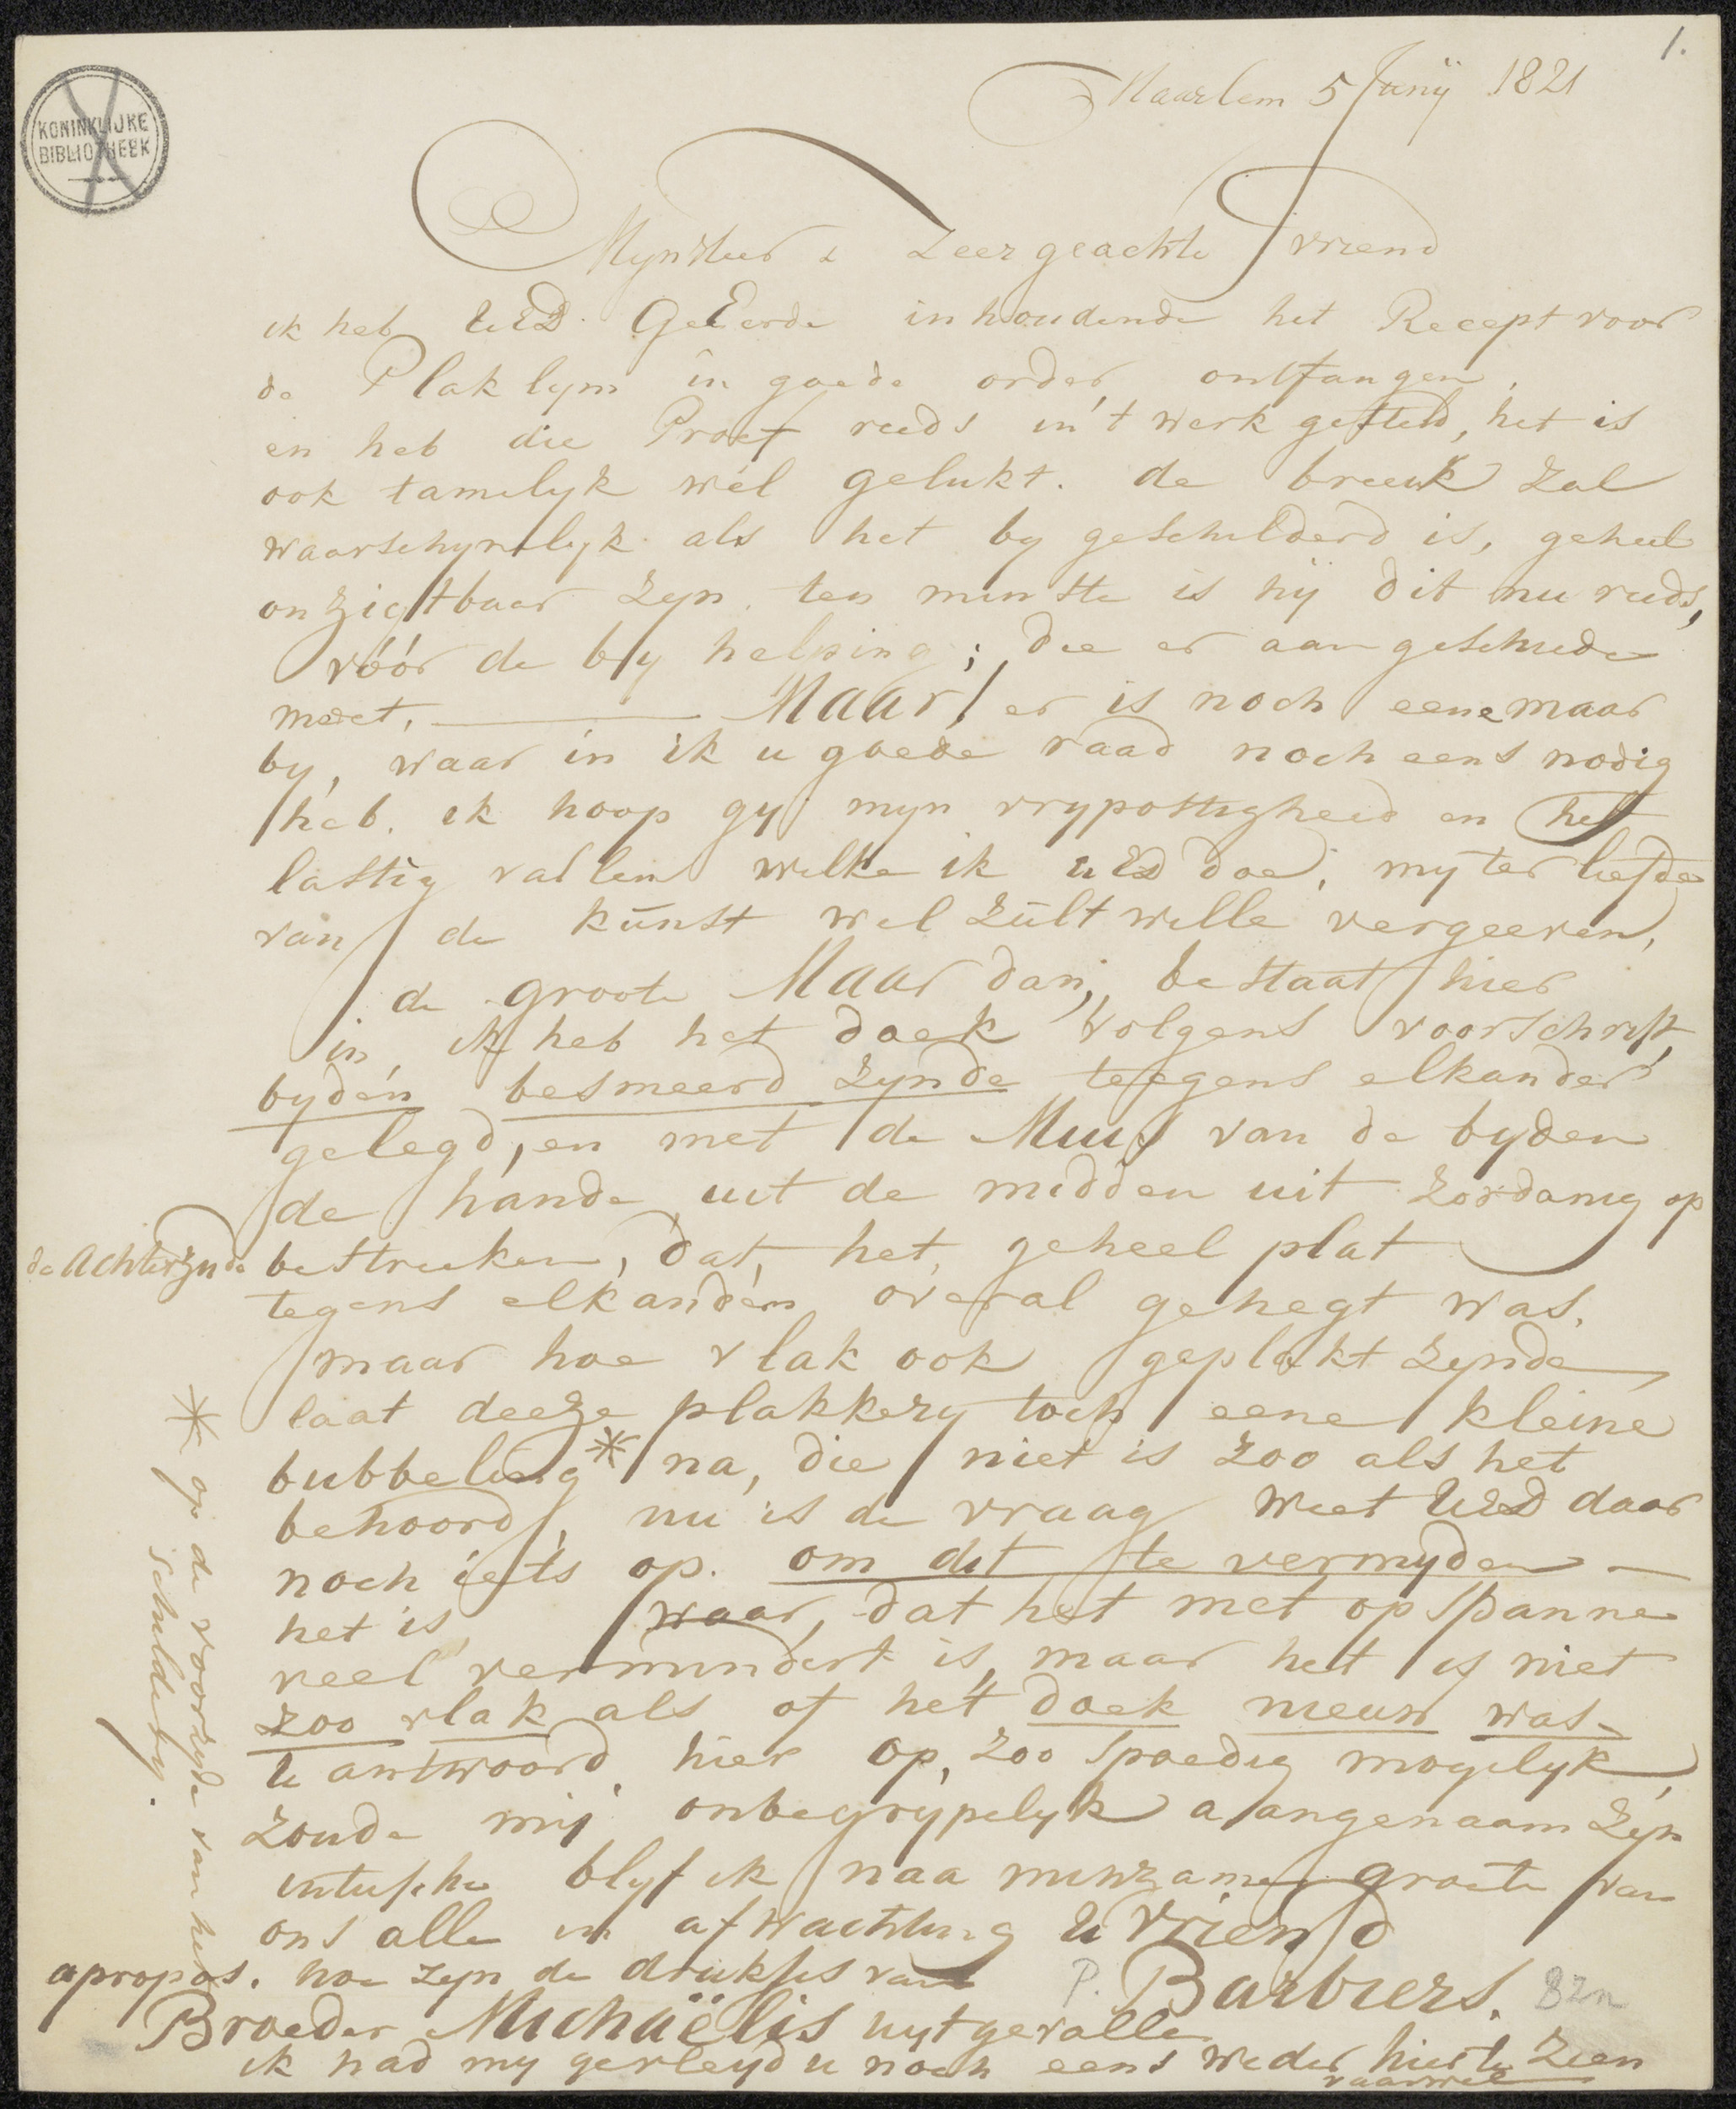 1.
KONINKLIJKE
BIBLIOTHEEK
Haarlem 5 Junij 1821
Mynheer & Zeer geachte Vriend
ik heb UED. GeEerde inhoudende het Recept voor
de Plaklym in goede order, ontfangen,
en heb die Proef reeds in't werk gesteld, het is
ook tamelyk wél gelukt. de breuk zal
waarschynelyk als het by geschilderd is, geheel
onzigtbaar zyn, ten minste is hij dit nu reeds,
vóór de by helping; die er aan geschiede
moet. — Maar! er is noch eene maar
by, waar in ik u goede raad noch eens nodig
heb. ik hoop gy myn vrypostigheid en het
lastig vallen welke ik UED doe, my ter liefde
van de kunst wel zult wille vergeeven,
de groote Maar dan, bestaat hier
in, ik heb het doek volgens voorschrift,
byden besmeerd zynde teegens elkander
gelegd, en met de Muis van de byden
de hande uit de midden uit zordanig op
de Achterzyde bestreeken, dat, het, geheel plat
tegens elkanden overal gehegt was.
maar hoe vlak ook geplakt zynde
laat deeze plakkery toch eene kleine
bubbeling * na, die niet is zoo als het
behoord, nu is de vraag weet UED daar
noch iets op. om dit te vermyden —
het is waar, dat het met opspanne
veel vermindert is, maar het is niet
zoo vlak als of het doek nieuw was-
U antwoord hier op, zoo spoedig mogelyk,
zoude mij onbegrypelyk aangenaam zyn
intussche blyf ik naa minzame groete van
ons alle in afwachting U Vriend
P. Barbiers. Bzn
apropos. hoe zyn de drukjes van
Broeder Michaëlis uytgevalle
ik had my gevleyd u noch eens weder hier te zien
vaarwel
* op de voorzyde van het
schildery.